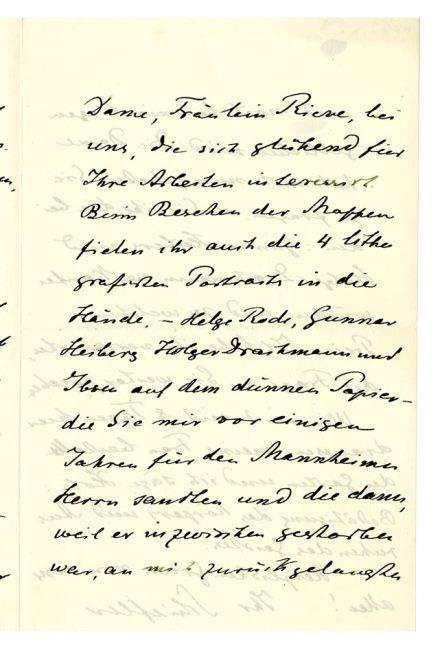 Dame, Fräulein Rieve, bei
uns, die sich glühend für
Ihre Arbeiten interessirt.
Beim Besehen der Mappen
fielen ihr auch die 4 litho
grafirten Portraits in die
Hände. – Helge Rode, Gunnar
Heiberg Holger Drachmann und
Ibsen auf dem dünnen Papier –
die Sie mir vor einigen
Jahren für den Mannheimer
Herrn sandten und die dann,
weil er inzwischen gestorben
war, an mich zurückgelangten